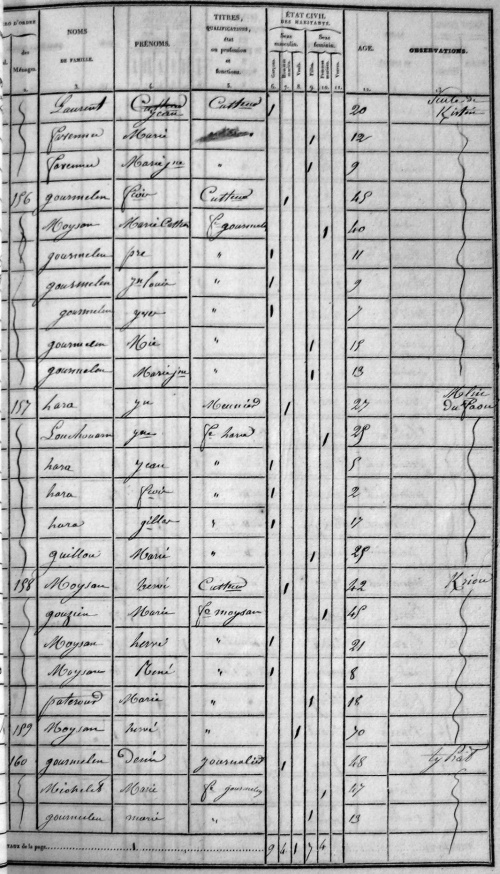 NOMS DE FAMILLE. PRÉNOMS. TITRES, QUALIFICATIONS, état ou profession et fonctions. ÉTAT CIVIL DES HABITANTS. AGE. OBSERVATIONS.
des Ménages. Sexe masculin. Sexe féminin.
Garçons. Hommes mariés. Veufs. Filles. Femmes mariées. Veuves.
2. 3. 4. 5. 6. 7. 8. 9. 10. 11. 12.
Laurent jean Cultteur 1 20
Marie 1 12
Marie jne " 1 9
156 gourmelen fcois Cultteur 1 45
Moysan Marie Cath fe gourmelen 1 40
gourmelen pre " 1 11
gourmelen jn louis " 1 9
gourmelen yves " 1 7
gourmelen Mie " 1 15
gourmelen Marie jne " 1 13
157 hara yn Meunier 1 27
yne fe hara 1 25
hara jean " 1 5
hara fcois " 1 2
hara gilles " 1 17
guillou Marie " 1 25
158 Moysan hervé Cultteur 1 42
gouzien Marie fe moysan 1 45
Moysan hervé " 1 21
Moysan René " 1 8
Marie " 1 18
159 Moysan hervé " 1 70
160 gourmelen denis journalier 1 48
Michelet Marie fe gourmelen 1 47
gourmelen marie " 1 13
TAUX de la page 9 4 1 7 4